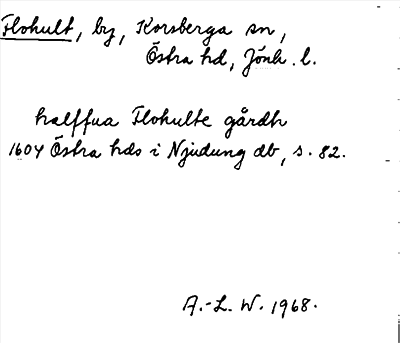 Flohult, by, Korsberga sn,
Östra hd, Jönk. l.
halffua Flohulte gårdh
1604 Östra hds i Njudung db, s. 82.
A.-L. W. 1968.